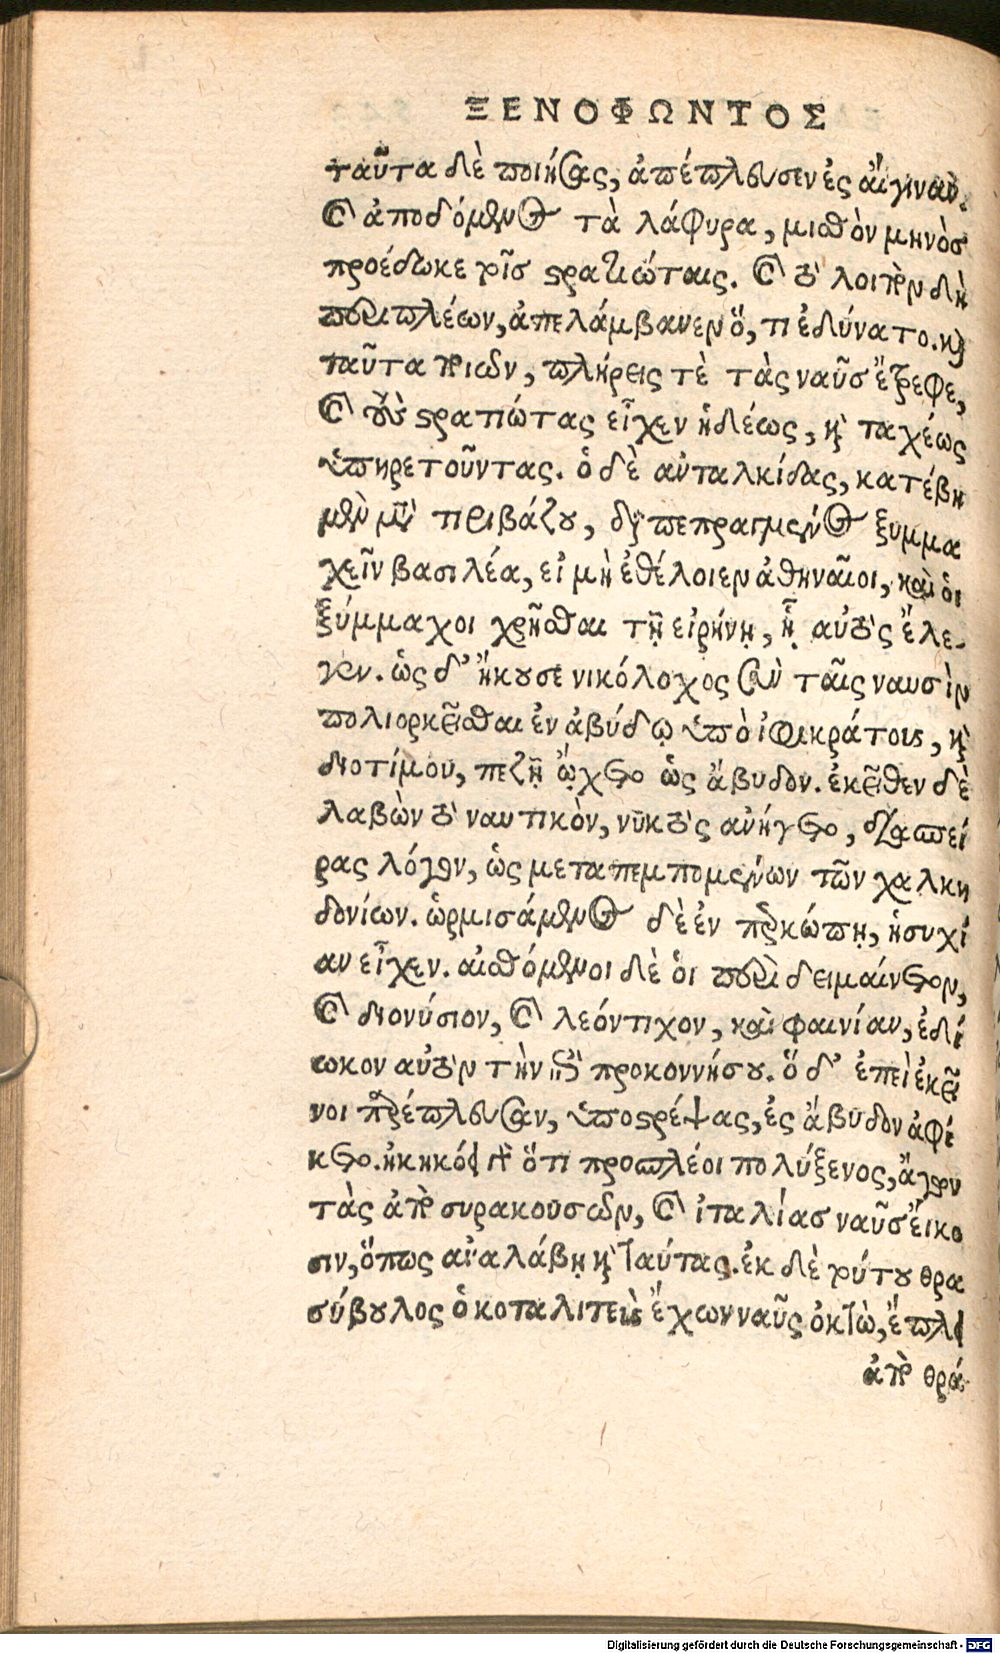 ΞΕΝΟΦΩΝΤΟΣ
ταῦτα δὲ ποιήσας, ἀπέπλευσεν ἐς αἴγιναν.
καὶ ἀπο δόμενος τὰ λάφυρα, μισθὸν μηνὸς
προέδωκε τοῖς στρατιώταις. καὶ τὸ λοιπὸν δὴ
περιπλέων, ἀπελάμβανεν ὅ, τι ἐδύνατο. καὶ
ταῦτα ποιῶν, πλήρεις τὲ τὰς ναῦς ἔτρεφε,
καὶ τοὺς στρατιώτας εἶχεν ἡδέως, καὶ ταχέως
ὑπηρετοῦντας. ὁ δὲ ἀνταλκίδας, κατέβη
μὲν μετὰ τιριβάζου, διαπεπραγμένος ξυμμα
χεῖν βασιλέα, εἰ μὴ ἐθέλοιεν ἀθηναῖοι, καὶ οἱ
ξύμμαχοι χρῆσθαι τῇ εἰρήνῃ, ᾗ αὐτὸς ἔλε-
γεν. ὡς δ' ἤκουσε νικόλοχος σὺν ταῖς ναυσὶν
πολιορκεῖσθαι ἐν ἀβύδῳ ὑπὸ ἰφικράτους, καὶ
διοτίμου, πεζῇ ᾤχετο ὡς ἄβυδον. ἐκεῖθεν δὲ
λαβὼν τὸ ναυτικὸν, νυκτὸς ἀνήγετο, διασπεί
ρας λόγον, ὡς μεταπεμπομένων τῶν χαλκη
δονίων. ὁρμισάμενος δὲ ἐν περκώπῃ, ἡσυχί
αν εἶχεν. αἰσθόμενοι δὲ οἱ περὶ δειμαίνετον,
καὶ διονύσιον, καὶ λεόντιχον, καὶ φαινίαν, ἐδί
ωκον αὐτὸν τὴν ἐπὶ προκοννήσου. ὅ δ' ἐπεὶ ἐκεῖ
νοι παρέπλευσαν, ὑποστρέψας, ἐς ἄβυδον ἀφί
κετο. ἠκηκόει γὰρ ὅτι προσπλέοι πολύξενος, ἄγων
τὰς ἀπὸ συρακουσῶν, καὶ ἰταλίας ναῦς εἴκο
σιν, ὅπως ἀναλάβῃ καὶ ταύτας. ἐκ δὲ τούτου θρα
σύβουλος ὁ κοταλιτεὺς ἔχων ναῦς ὀκτὼ, ἔπλει
ἀπὸ θρά
Digitalisierung gefördert durch die Deutsche Forschungsgemeinschaft - DFG